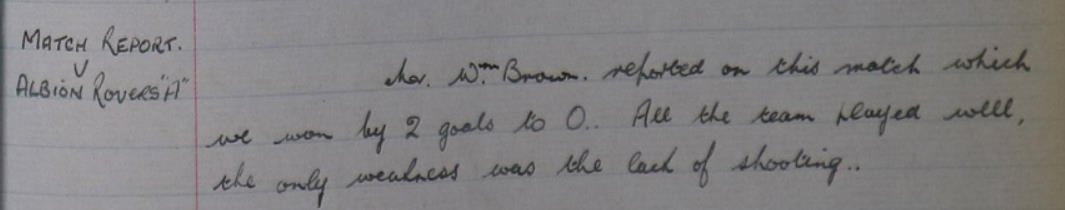 MATCH REPORT.
V
ALBION ROVERS "A"
Mr. Wm. Brown. reported on this match which
we won by 2 goals to 0.. All the team played well,
the only weakness was the lack of shooting..